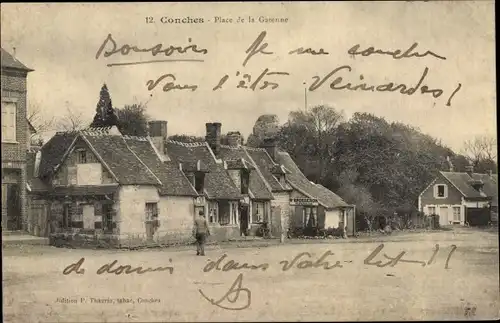 12. Conches - Place de la Garenne
Bonsoir je me couche
Vous l'êtes Veinardes !
de dormir dans votre lit !!
A
Edition P. Théorin, tabac, Conches